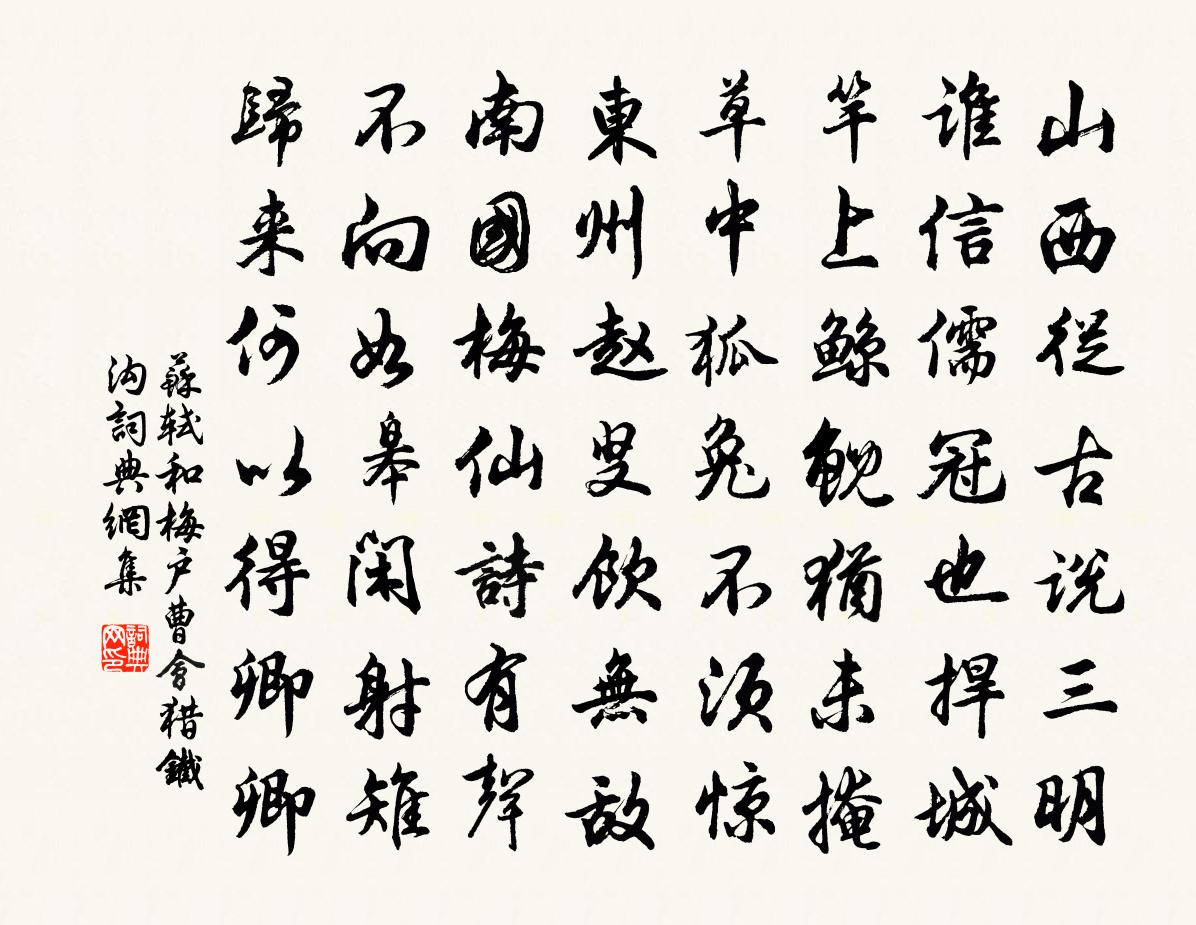 山西從古説三明
誰信儒冠也捍城
竿上鯨鯢猶未掩
草中狐兔不須驚
東州趙叟飲無敵
南國梅仙詩有聲
不向如皋閑射雉
歸來何以得卿卿
蘇軾和梅戶曹會獵鐵
沟詞典網集
詞典网印